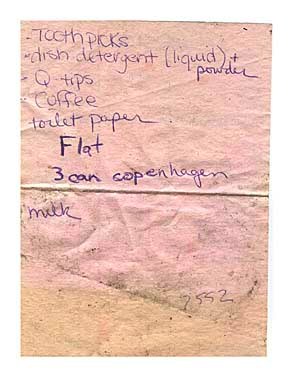 - Toothpicks
- dish detergent (liquid) +
powder
- Q-tips
- Coffee
toilet paper
Flat
3 can copenhagen
milk
2552